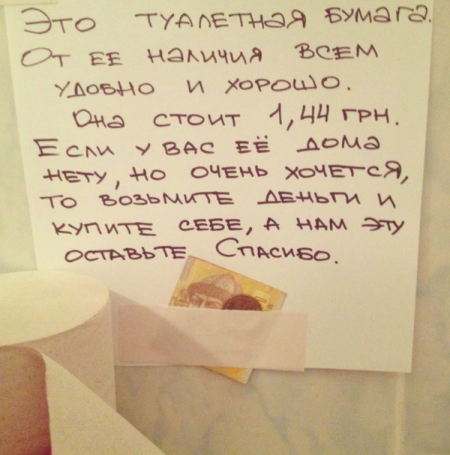 Это туалетная бумага.
От ее наличия всем
удобно и хорошо.
Она стоит 1,44 грн.
Если у вас её дома
нету, но очень хочется,
то возьмите деньги и
купите себе, а нам эту
оставьте Спасибо.